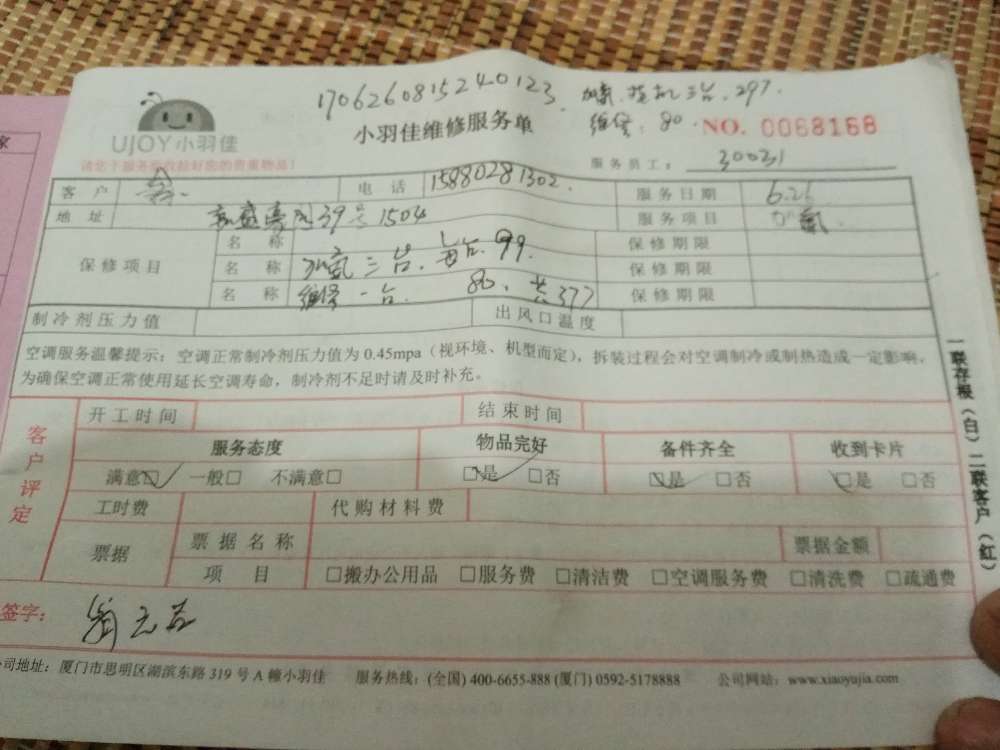 170626081524 0123. 加氟.挂机三台.297.
UJOY小羽佳 小羽佳维修服务单 维修: 80. NO. 0068168
服务员工: 30031
客户 电话 15880281302. 服务日期 6.26
地址 39号1504 服务项目 加氟
保修项目 名称 保修期限
名称 加氟三台.每台.99. 保修期限
名称 维修一台. 80. 共377 保修期限
制冷剂压力值 出风口温度
空调服务温馨提示：空调正常制冷剂压力值为0.45mpa（视环境、机型而定），拆装过程会对空调制冷或制热造成一定影响，
为确保空调正常使用延长空调寿命，制冷剂不足时请及时补充。
一联存根（白）二联客户（红）
客户评定
开工时间 结束时间
服务态度 物品完好 备件齐全 收到卡片
满意□ 一般□ 不满意□ □是 □否 □是 □否 □是 □否
工时费 代购材料费
票据 票据名称 票据金额
项目 □搬办公用品 □服务费 □清洁费 □空调服务费 □清洗费 □疏通费
签字:
公司地址: 厦门市思明区湖滨东路319号A幢小羽佳 服务热线: (全国) 400-6655-888 (厦门) 0592-5178888 公司网站: www.xiaoyujia.com